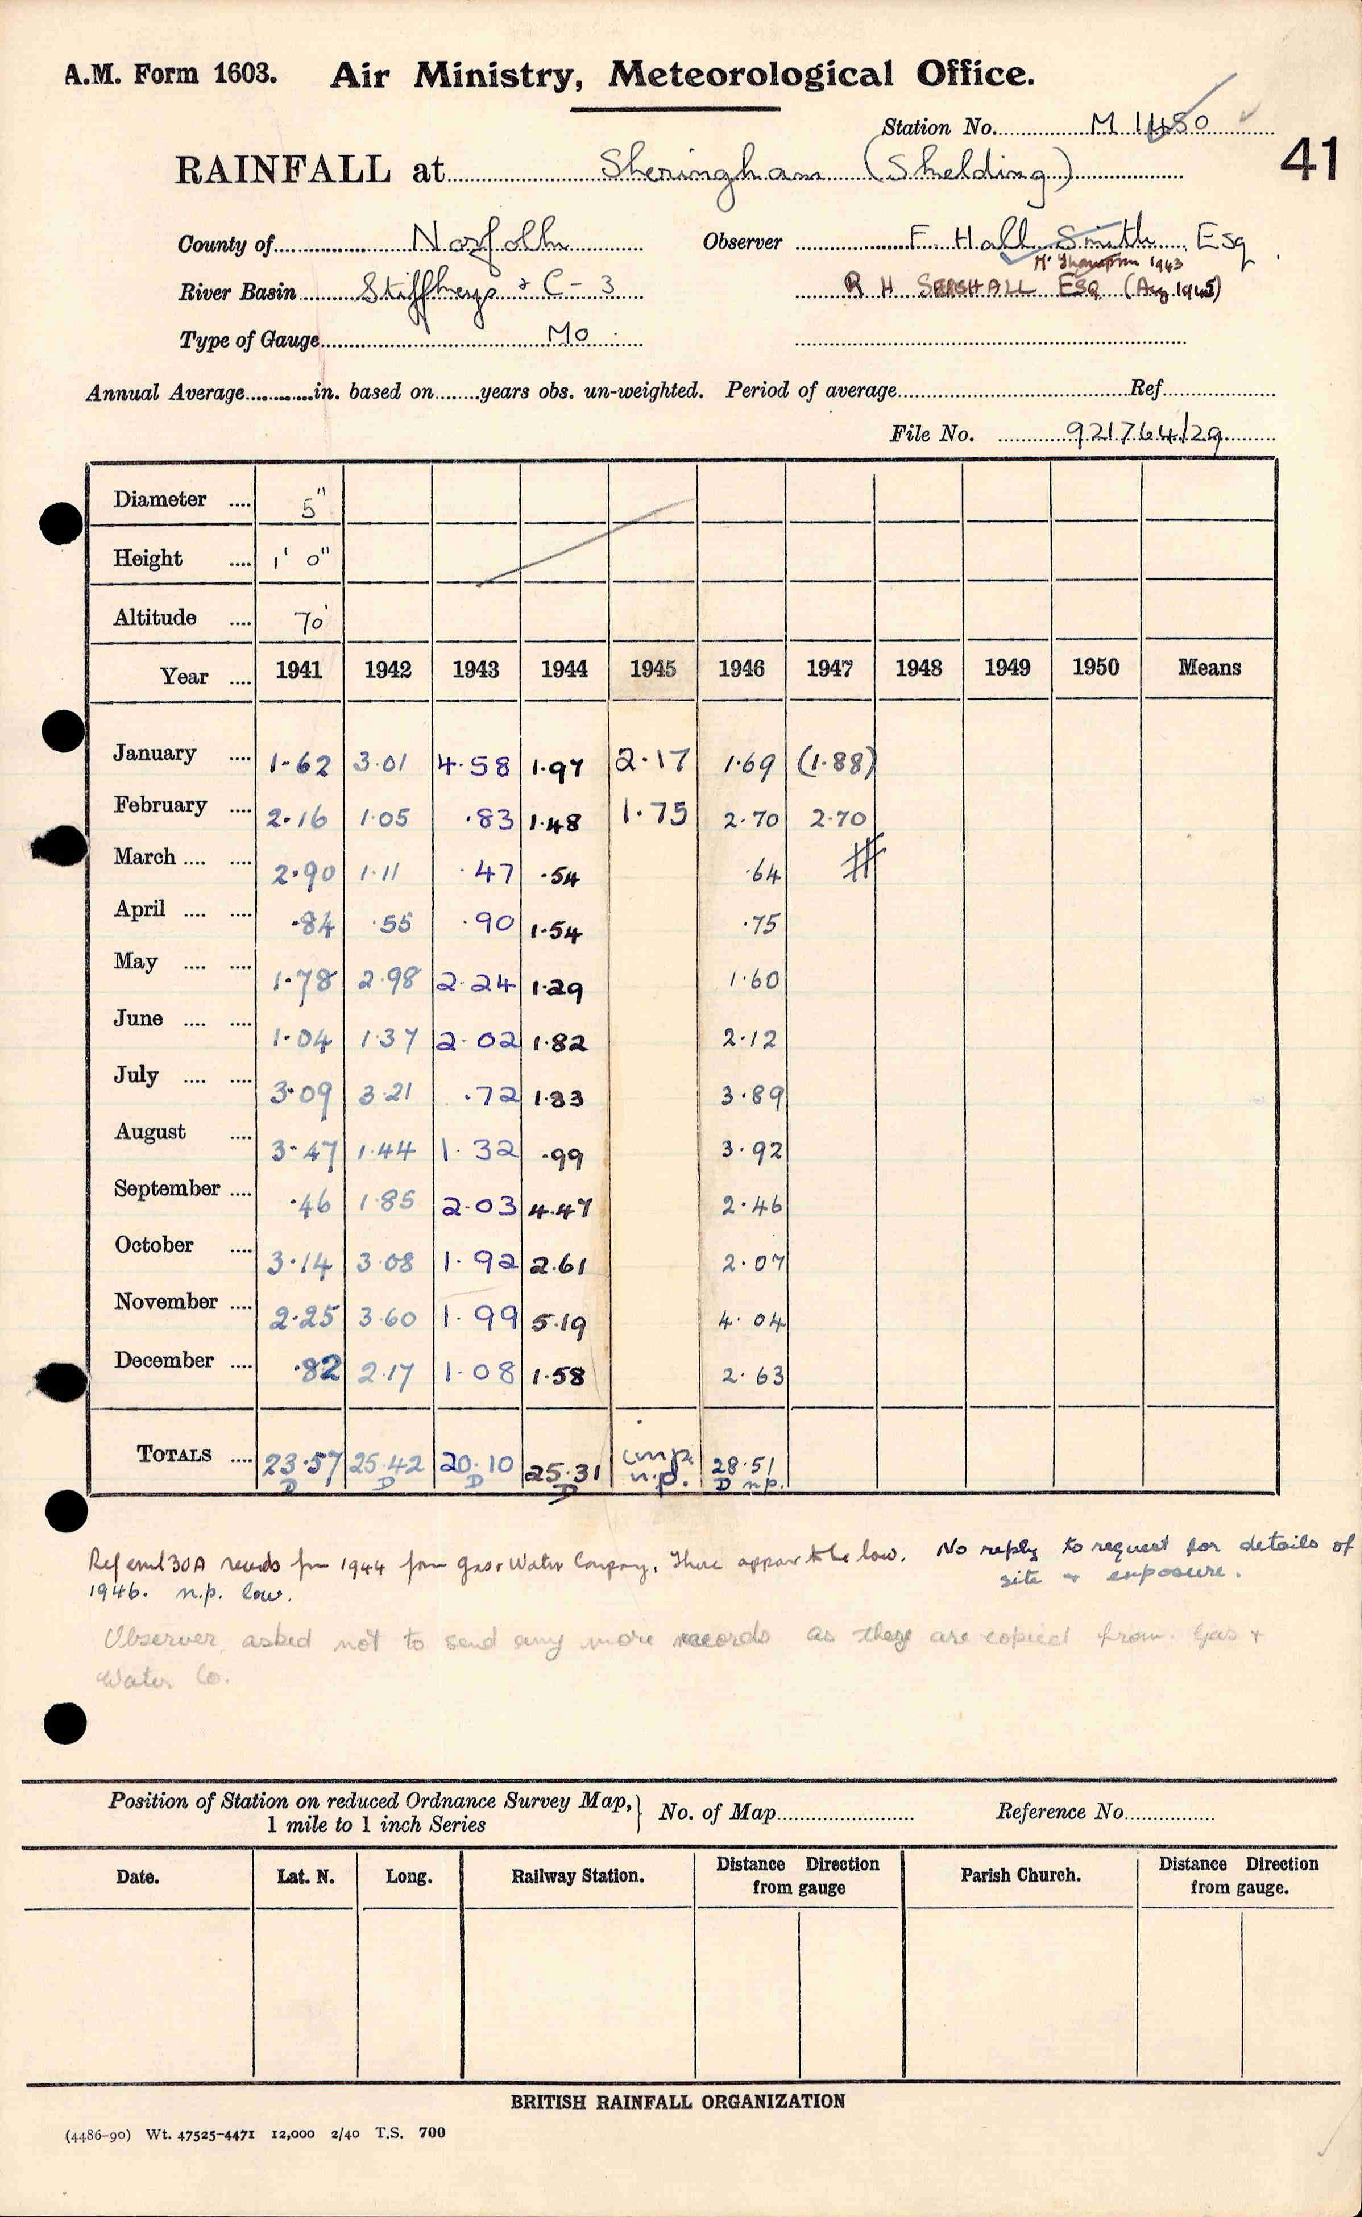 A.M. Form 1603. Air Ministry, Meteorological Office.
Station No. M 1480
RAINFALL at Sheringham (Shelding) 41
County of Norfolk Observer F. Hall Smith, Esq.
Mr Thompson 1943
River Basin Stiffkeys & C - 3 R H SEASHALL ESQ (Aug 1945)
Type of Gauge Mo
Annual Average in. based on years obs. un-weighted. Period of average Ref
File No. 921764/29
Diameter 5"
Height 1' 0"
Altitude 70'
Year 1941 1942 1943 1944 1945 1946 1947 1948 1949 1950 Means
January 1.62 3.01 4.58 1.97 2.17 1.69 (1.88)
February 2.16 1.05 .83 1.48 1.75 2.70 2.70
March 2.90 1.11 .47 .54 .64
April .84 .55 .90 1.54 .75
May 1.78 2.98 2.24 1.29 1.60
June 1.04 1.37 2.02 1.82 2.12
July 3.09 3.21 .72 1.83 3.89
August 3.47 1.44 1.32 .99 3.92
September .46 1.85 2.03 4.47 2.46
October 3.14 3.08 1.92 2.61 2.07
November 2.25 3.60 1.99 5.19 4.04
December .82 2.17 1.08 1.58 2.63
TOTALS 23.57 25.42 20.10 25.31 imp. 28.51
D D D D n.p. D n.p.
30A records for 1944 from Gas & Water Company. These appear to be low. No reply to request for details of
1946. n.p. low. site & exposure.
Observer asked not to send any more records as they are copied from Gas &
Water Co.
Position of Station on reduced Ordnance Survey Map, No. of Map Reference No.
1 mile to 1 inch Series
Date. Lat. N. Long. Railway Station. Distance Direction Parish Church. Distance Direction
from gauge from gauge.
BRITISH RAINFALL ORGANIZATION
(4486-90) Wt. 47525-4471 12,000 2/40 T.S. 700